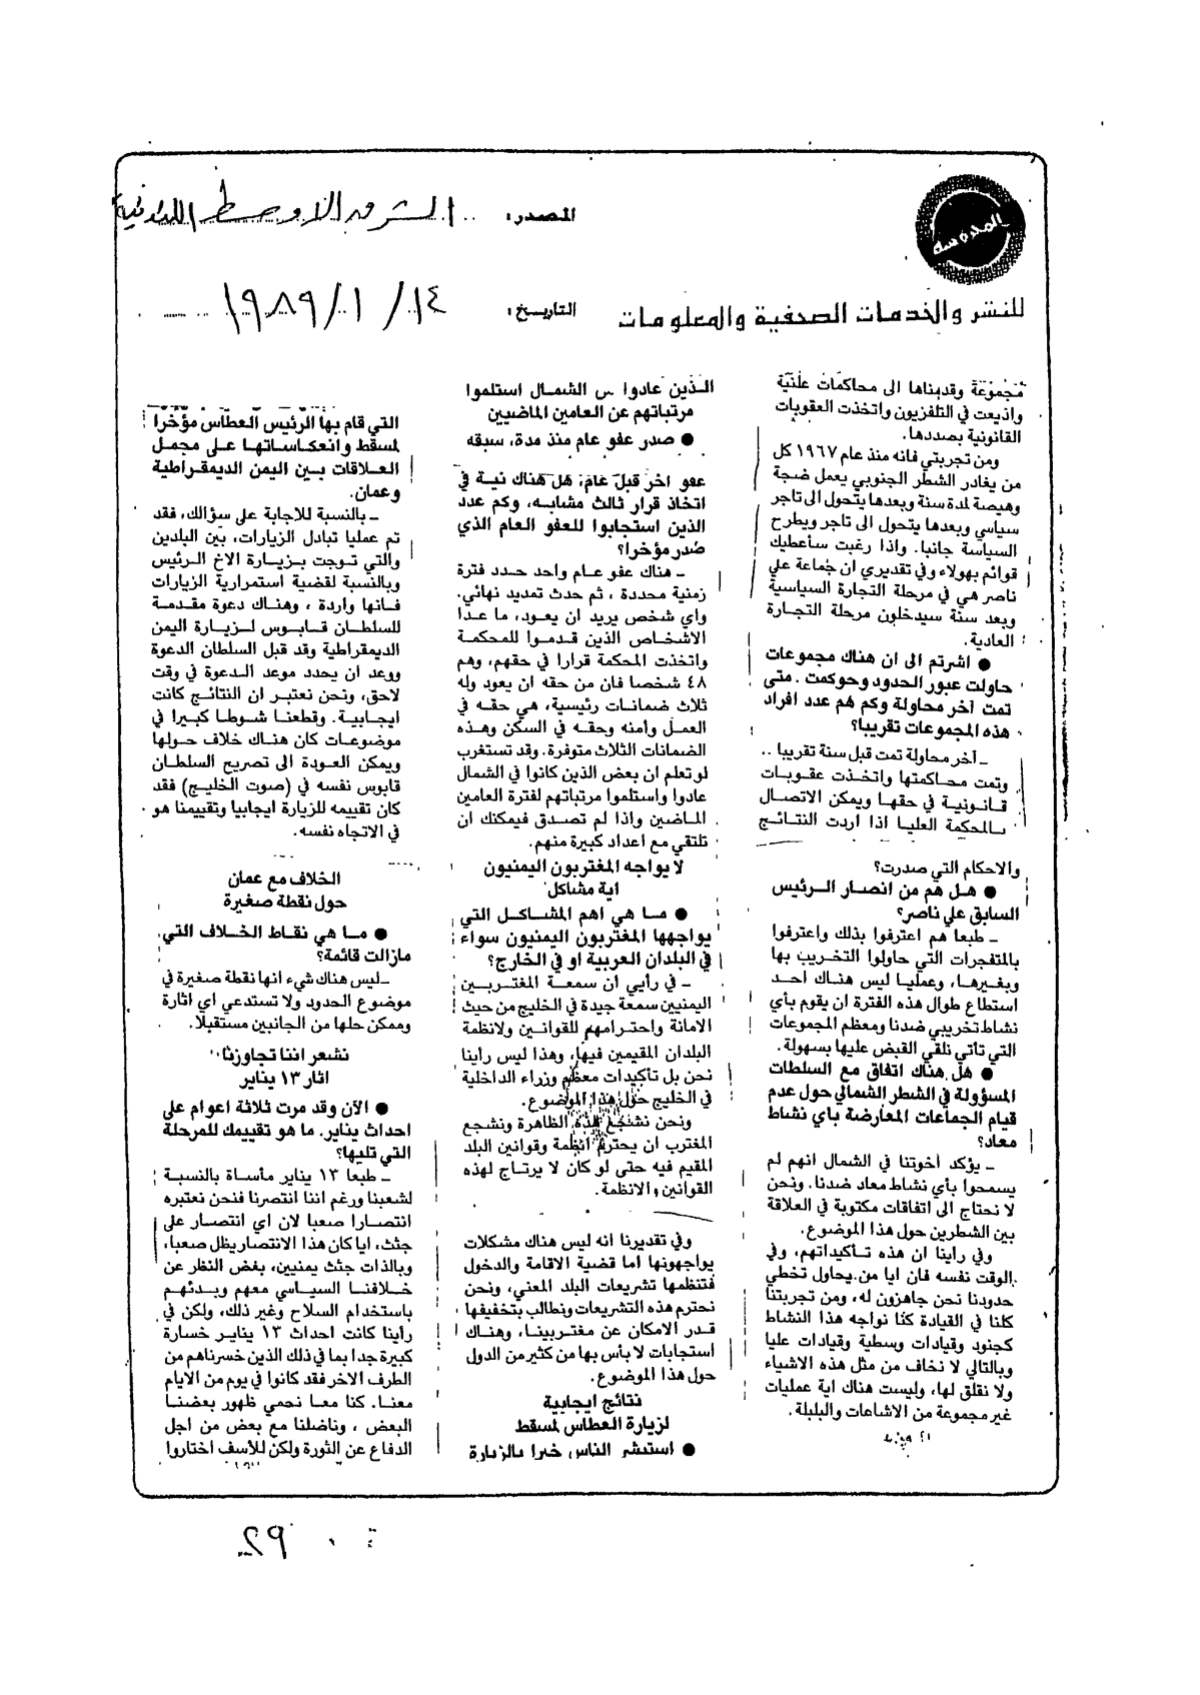 المدوسه
المصدر: الشرق الاوسط اللندنية
للنشر والخدمات الصحفية والمعلومات
التاريخ: ١٩٨٩/١/١٤
مجموعة وقدمناها الى محاكمات علنية
واذيعت في التلفزيون واتخذت العقوبات
القانونية بصددها.
ومن تجربتي فانه منذ عام ١٩٦٧ كل
من يغادر الشطر الجنوبي يعمل ضجة
وهيصة لمدة سنة وبعدها يتحول الى تاجر
سياسي وبعدها يتحول الى تاجر ويطرح
السياسة جانبا. واذا رغبت سأعطيك
قوائم بهولاء وفي تقديري ان جماعة علي
ناصر هي في مرحلة التجارة السياسية
وبعد سنة سيدخلون مرحلة التجارة
العادية.
● اشرتم الى ان هناك مجموعات
حاولت عبور الحدود وحوكمت . متى
تمت آخر محاولة وكم هم عدد افراد
هذه المجموعات تقريبا؟
ـ آخر محاولة تمت قبل سنة تقريبا ..
وتمت محاكمتها واتخذت عقوبات
قانونية في حقها ويمكن الاتصال
بالمحكمة العليا اذا اردت النتائج
والاحكام التي صدرت؟
● هل هم من انصار الرئيس
السابق علي ناصر؟
ـ طبعا هم اعترفوا بذلك واعترفوا
بالمتفجرات التي حاولوا التخريب بها
وبغيرها، وعمليا ليس هناك أحد
استطاع طوال هذه الفترة ان يقوم بأي
نشاط تخريبي ضدنا ومعظم المجموعات
التي تأتي نلقي القبض عليها بسهولة.
● هل هناك اتفاق مع السلطات
المسؤولة في الشطر الشمالي حول عدم
قيام الجماعات المعارضة بأي نشاط
معاد؟
ـ يؤكد أخوتنا في الشمال انهم لم
يسمحوا بأي نشاط معاد ضدنا. ونحن
لا نحتاج الى اتفاقات مكتوبة في العلاقة
بين الشطرين حول هذا الموضوع.
وفي راينا ان هذه تأكيداتهم، وفي
الوقت نفسه فان ايا من يحاول تخطي
حدودنا نحن جاهزون له، ومن تجربتنا
كلنا في القيادة كنا نواجه هذا النشاط
كجنود وقيادات وسطية وقيادات عليا
وبالتالي لا نخاف من مثل هذه الاشياء
ولا نقلق لها، وليست هناك اية عمليات
غير مجموعة من الاشاعات والبلبلة.
الذين عادوا من الشمال استلموا
مرتباتهم عن العامين الماضيين
● صدر عفو عام منذ مدة، سبقه
عفو اخر قبل عام، هل هناك نية في
اتخاذ قرار ثالث مشابه، وكم عدد
الذين استجابوا للعفو العام الذي
صدر مؤخرا؟
ـ هناك عفو عام واحد حدد فترة
زمنية محددة ، ثم حدث تمديد نهائي.
واي شخص يريد ان يعود، ما عدا
الاشخاص الذين قدموا للمحكمة
واتخذت المحكمة قرارا في حقهم، وهم
٤٨ شخصا فان من حقه ان يعود وله
ثلاث ضمانات رئيسية، هي حقه في
العمل وأمنه وحقه في السكن وهذه
الضمانات الثلاث متوفرة. وقد تستغرب
لو تعلم ان بعض الذين كانوا في الشمال
عادوا واستلموا مرتباتهم لفترة العامين
الماضين واذا لم تصدق فيمكنك ان
تلتقي مع اعداد كبيرة منهم.
لا يواجه المغتربون اليمنيون
اية مشاكل
● ما هي اهم المشاكل التي
يواجهها المغتربون اليمنيون سواء
في البلدان العربية او في الخارج؟
ـ في رأيي ان سمعة المغتربين
اليمنيين سمعة جيدة في الخليج من حيث
الامانة واحترامهم للقوانين ولانظمة
البلدان المقيمين فيها، وهذا ليس راينا
نحن بل تأكيدات معظم وزراء الداخلية
في الخليج حول هذا الموضوع.
ونحن نشجع هذه الظاهرة ونشجع
المغترب ان يحترم انظمة وقوانين البلد
المقيم فيه حتى لو كان لا يرتاح لهذه
القوانين والانظمة.
وفي تقديرنا انه ليس هناك مشكلات
يواجهونها اما قضية الاقامة والدخول
فتنظمها تشريعات البلد المعني، ونحن
نحترم هذه التشريعات ونطالب بتخفيفها
قدر الامكان عن مغتربينا، وهناك
استجابات لا بأس بها من كثير من الدول
حول هذا الموضوع.
نتائج ايجابية
لزيارة العطاس لمسقط
● استبشر الناس خيرا بالزيارة
التي قام بها الرئيس العطاس مؤخرا
لمسقط وانعكاساتها على مجمل
العلاقات بين اليمن الديمقراطية
وعمان.
ـ بالنسبة للاجابة على سؤالك، فقد
تم عمليا تبادل الزيارات، بين البلدين
والتي توجت بزيارة الاخ الرئيس
وبالنسبة لقضية استمرارية الزيارات
فانها واردة ، وهناك دعوة مقدمة
للسلطان قابوس لزيارة اليمن
الديمقراطية وقد قبل السلطان الدعوة
ووعد ان يحدد موعد الدعوة في وقت
لاحق، ونحن نعتبر ان النتائج كانت
ايجابية. وقطعنا شوطا كبيرا في
موضوعات كان هناك خلاف حولها
ويمكن العودة الى تصريح السلطان
قابوس نفسه في (صوت الخليج) فقد
كان تقييمه للزيارة ايجابيا وتقييمنا هو
في الاتجاه نفسه.
الخلاف مع عمان
حول نقطة صغيرة
● ما هي نقاط الخلاف التي
مازالت قائمة؟
ـ ليس هناك شيء انها نقطة صغيرة في
موضوع الحدود ولا تستدعي اي اثارة
وممكن حلها من الجانبين مستقبلا.
نشعر اننا تجاوزنا
اثار ١٣ يناير
● الآن وقد مرت ثلاثة اعوام على
احداث يناير. ما هو تقييمك للمرحلة
التي تليها؟
ـ طبعا ١٣ يناير مأساة بالنسبة
لشعبنا ورغم اننا انتصرنا فنحن نعتبره
انتصارا صعبا لان اي انتصار على
جثث، ايا كان هذا الانتصار يظل صعبا،
وبالذات جثث يمنيين، بغض النظر عن
خلافنا السياسي معهم وبدئهم
باستخدام السلاح وغير ذلك، ولكن في
رأينا كانت احداث ١٣ يناير خسارة
كبيرة جدا بما في ذلك الذين خسرناهم من
الطرف الاخر فقد كانوا في يوم من الايام
معنا. كنا معا نحمي ظهور بعضنا
البعض ، وناضلنا مع بعض من أجل
الدفاع عن الثورة ولكن للأسف اختاروا